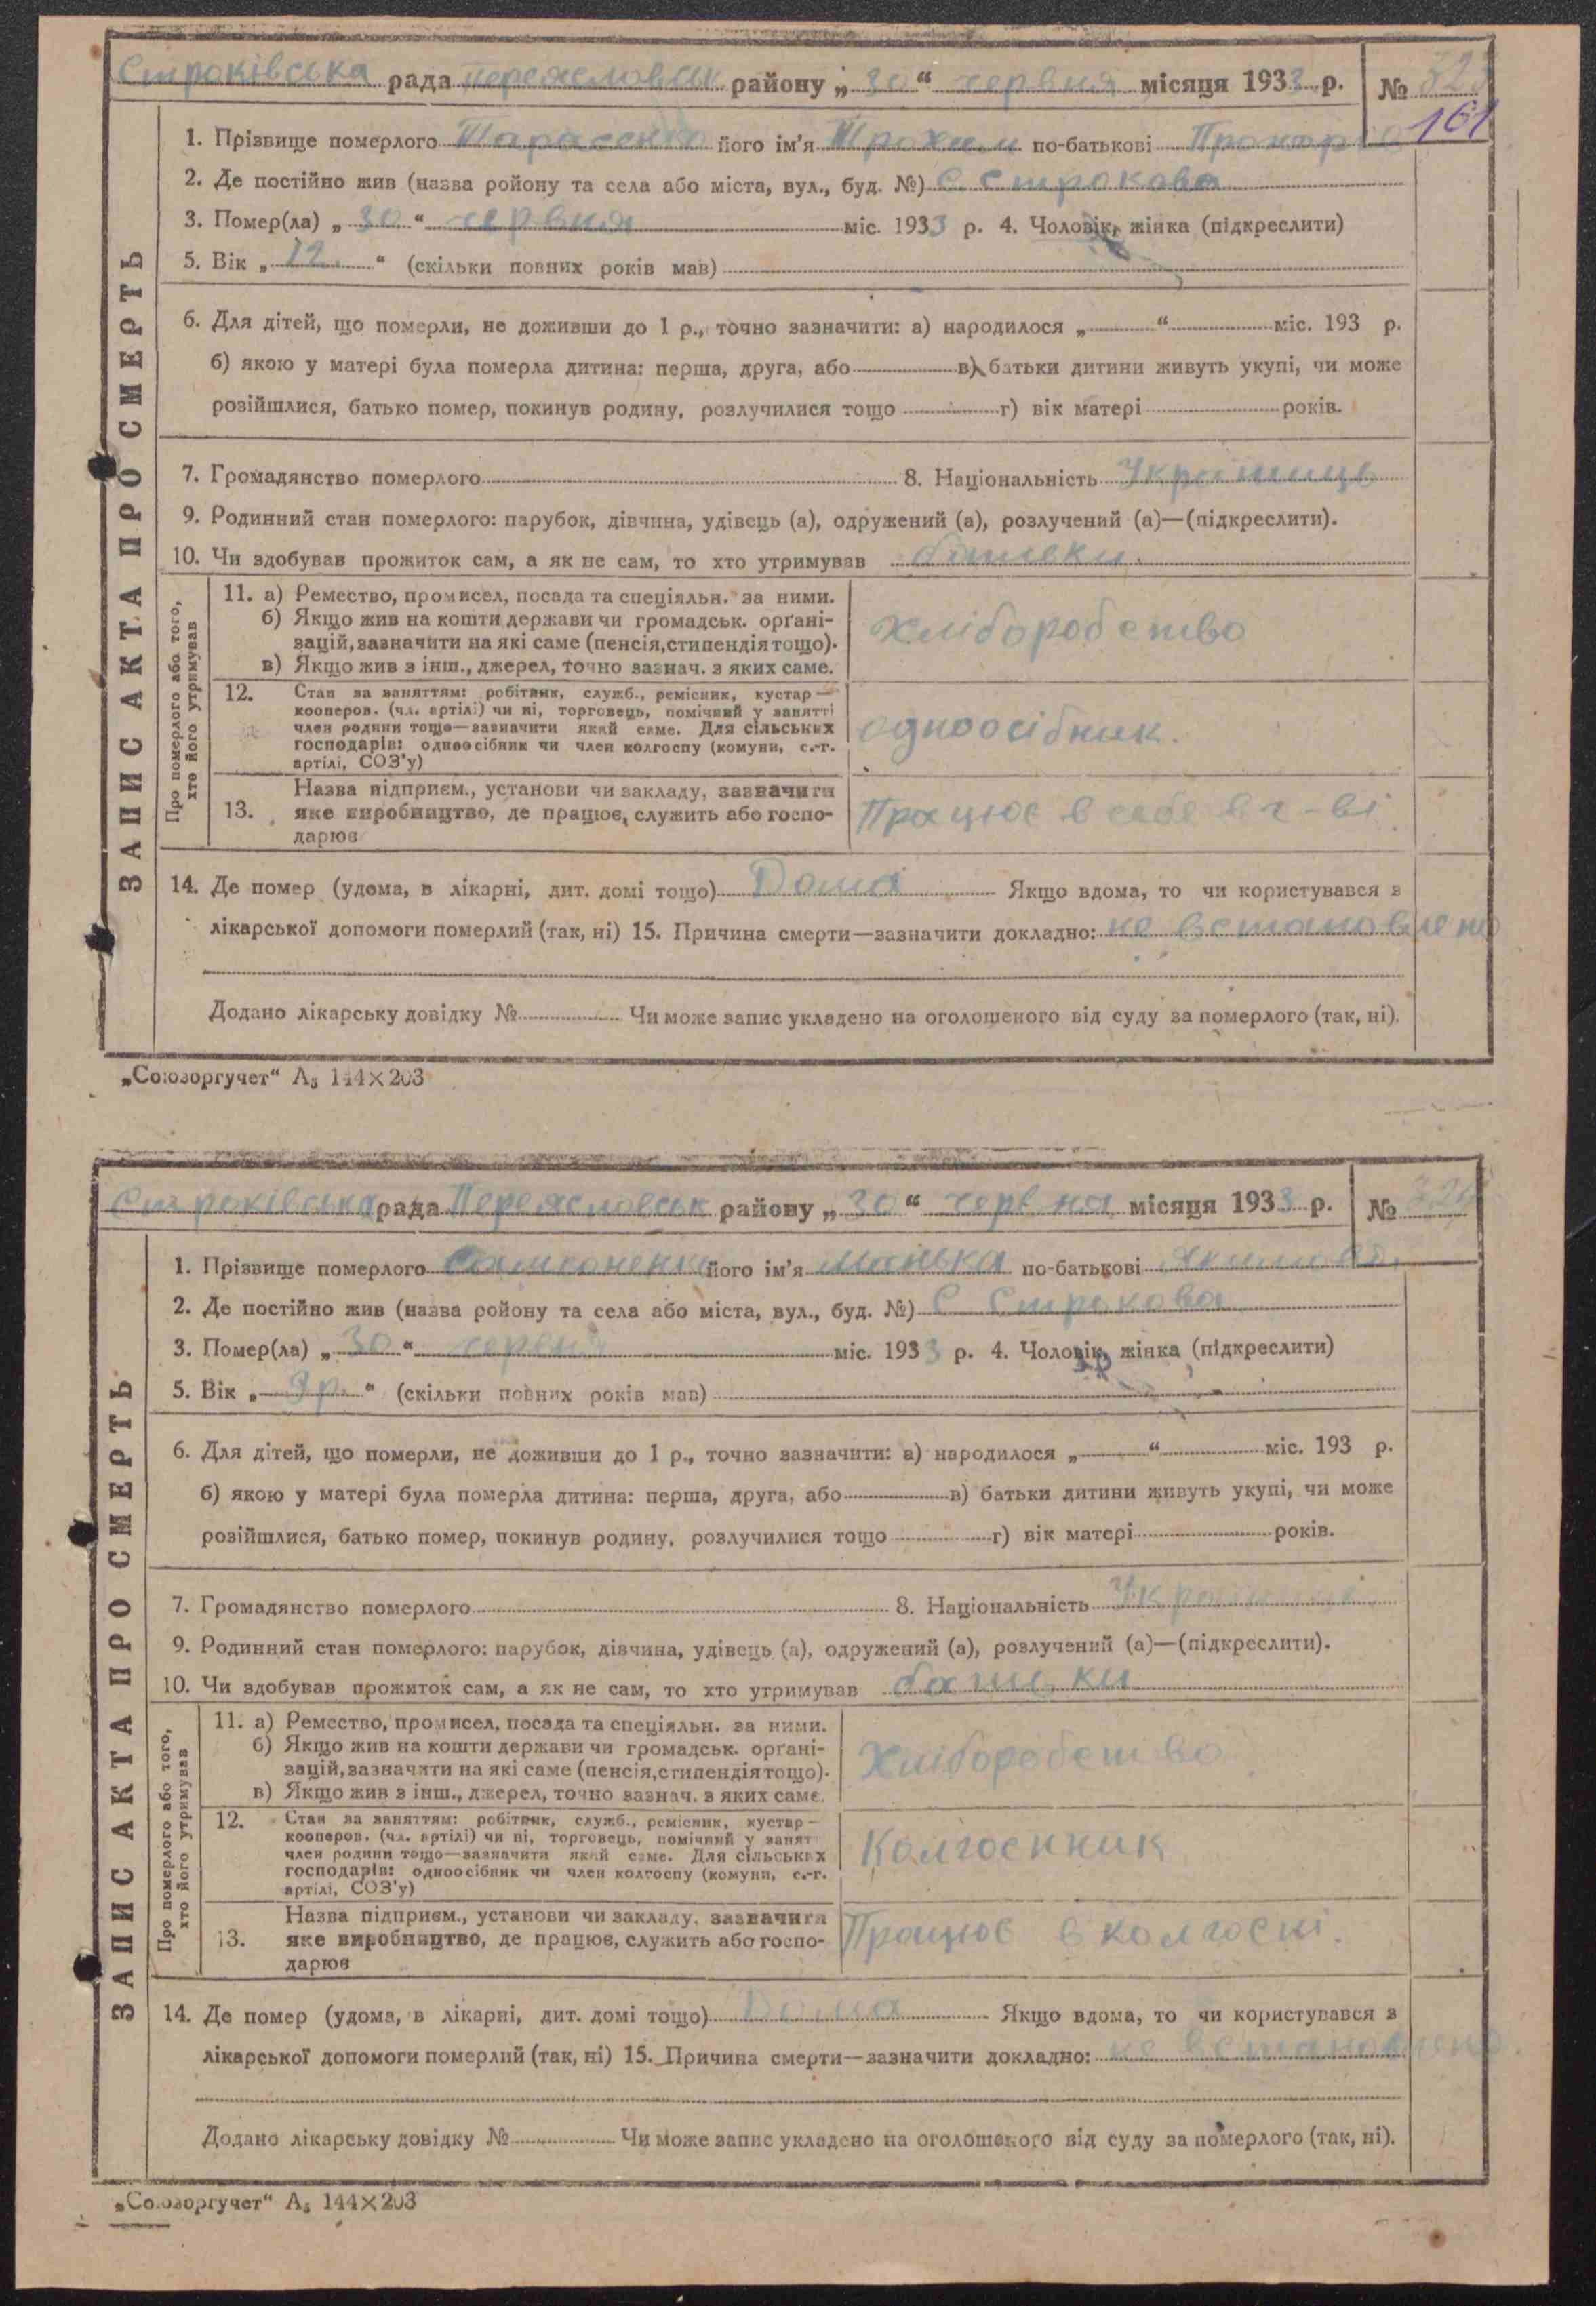 Строківська рада Переяславськ району „ 30 “ червня місяця 1933 р. № 323
161
ЗАПИС АКТА ПРО СМЕРТЬ
1. Прізвище померлого Тарасенко його ім'я Трохим по-батькові
2. Де постійно жив (назва ройону та села або міста, вул., буд. №) с. Строкова
3. Помер(ла) „ 30 “ червня міс. 1933 р. 4. Чоловік, жінка (підкреслити)
5. Вік „ 12 “ (скільки повних років мав)
6. Для дітей, що померли, не доживши до 1 р., точно зазначити: а) народилося „ “ міс. 193 р.
б) якою у матері була померла дитина: перша, друга, або в) батьки дитини живуть укупі, чи може
розійшлися, батько помер, покинув родину, розлучилися тощо г) вік матері років.
7. Громадянство померлого 8. Національність Українець
9. Родинний стан померлого: парубок, дівчина, удівець (а), одружений (а), розлучений (а)—(підкреслити).
10. Чи здобував прожиток сам, а як не сам, то хто утримував батьки.
Про померлого або того,
хто його утримував
11. а) Ремество, промисел, посада та спеціяльн. за ними.
б) Якщо жив на кошти держави чи громадськ. органі-
зацій, зазначити на які саме (пенсія, стипендія тощо).
в) Якщо жив з інш., джерел, точно зазнач. з яких саме.
Хліборобство
12. Стан за заняттям: робітник, служб., ремісник, кустар—
кооперов. (чл. артілі) чи ні, торговець, помічний у занятті
член родини тощо—зазначити який саме. Для сільських
господарів: одноосібник чи член колгоспу (комуни, с.-г.
артілі, СОЗ'у)
одноосібник.
13. Назва підприєм., установи чи закладу, зазначити
яке виробництво, де працює, служить або госпо-
дарює
Працює в себе в г-ві.
14. Де помер (удома, в лікарні, дит. домі тощо) Дома Якщо вдома, то чи користувався з
лікарської допомоги померлий (так, ні) 15. Причина смерти—зазначити докладно: не встановлено
Додано лікарську довідку № Чи може запис укладено на оголошеного від суду за померлого (так, ні).
„Союзоргучет“ А₅ 144×203
Строківська рада Переяславськ району „ 30 “ червня місяця 1933 р. №
ЗАПИС АКТА ПРО СМЕРТЬ
1. Прізвище померлого його ім'я Манька по-батькові
2. Де постійно жив (назва ройону та села або міста, вул., буд. №) С Строкова
3. Помер(ла) „ 30 “ червня міс. 1933 р. 4. Чоловік, жінка (підкреслити)
5. Вік „ 9 р. “ (скільки повних років мав)
6. Для дітей, що померли, не доживши до 1 р., точно зазначити: а) народилося „ “ міс. 193 р.
б) якою у матері була померла дитина: перша, друга, або в) батьки дитини живуть укупі, чи може
розійшлися, батько помер, покинув родину, розлучилися тощо г) вік матері років.
7. Громадянство померлого 8. Національність
9. Родинний стан померлого: парубок, дівчина, удівець (а), одружений (а), розлучений (а)—(підкреслити).
10. Чи здобував прожиток сам, а як не сам, то хто утримував батьки
Про померлого або того,
хто його утримував
11. а) Ремество, промисел, посада та спеціяльн. за ними.
б) Якщо жив на кошти держави чи громадськ. органі-
зацій, зазначити на які саме (пенсія, стипендія тощо).
в) Якщо жив з інш., джерел, точно зазнач. з яких саме.
Хліборобство
12. Стан за заняттям: робітник, служб., ремісник, кустар—
кооперов. (чл. артілі) чи ні, торговець, помічний у занят
член родини тощо—зазначити який саме. Для сільських
господарів: одноосібник чи член колгоспу (комуни, с.-г.
артілі, СОЗ'у)
Колгоспник
13. Назва підприєм., установи чи закладу, зазначити
яке виробництво, де працює, служить або госпо-
дарює
Працює в колгоспі.
14. Де помер (удома, в лікарні, дит. домі тощо) Дома Якщо вдома, то чи користувався з
лікарської допомоги померлий (так, ні) 15. Причина смерти—зазначити докладно: не встановлено.
Додано лікарську довідку № Чи може запис укладено на оголошеного від суду за померлого (так, ні).
„Союзоргучет“ А₅ 144×203